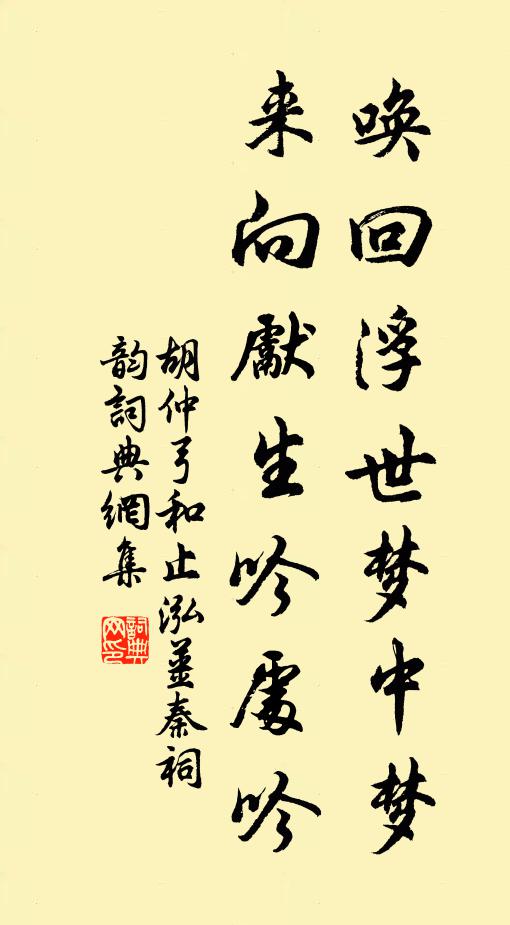 唤回浮世梦中梦
来向獻生吟處吟
胡仲弓和止泓並秦祠
韵詞典網集
詞典网印